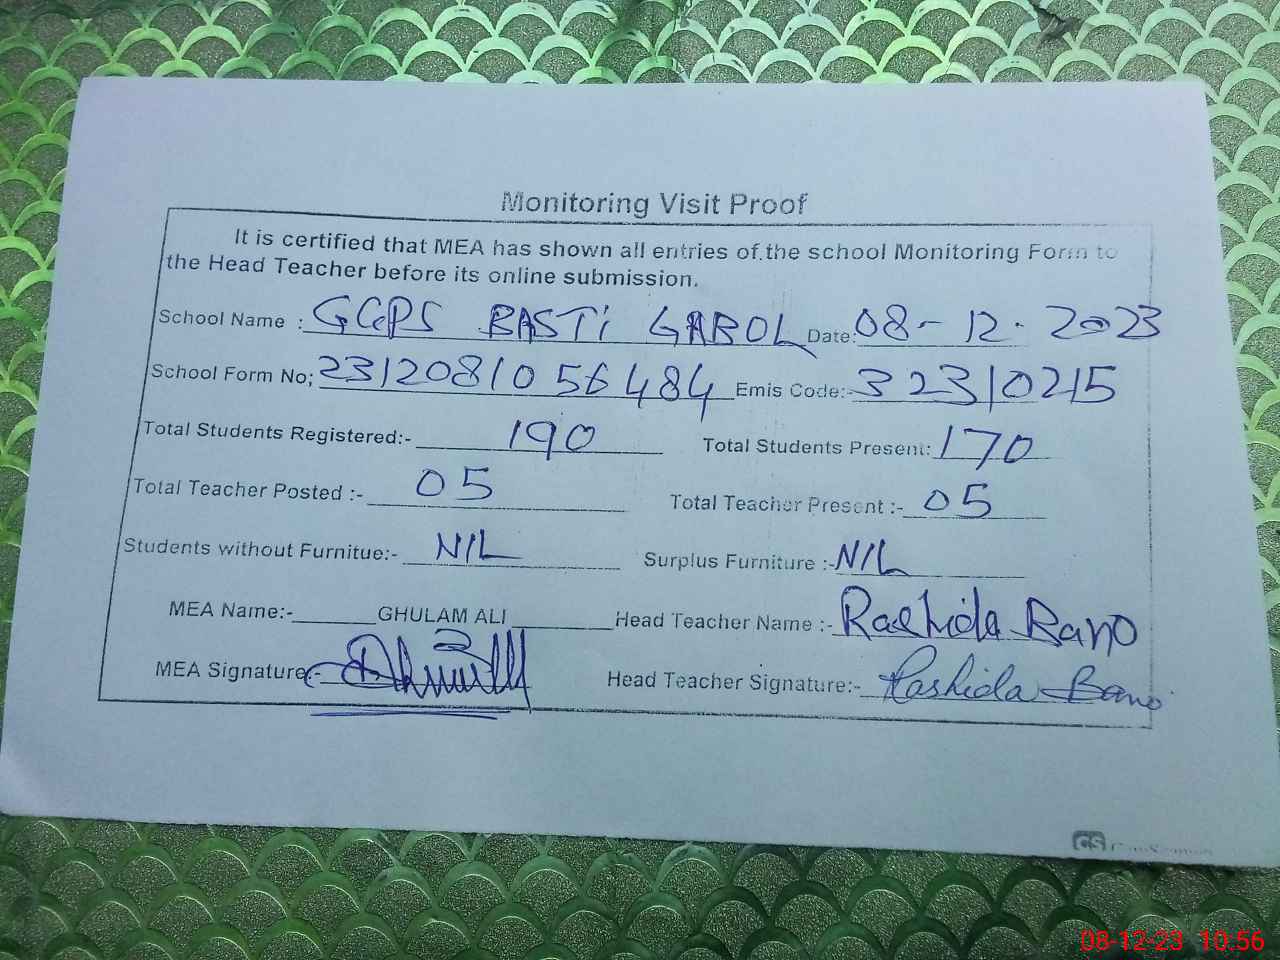 Monitoring Visit Proof
It is certified that MEA has shown all entries of the school Monitoring Form to
the Head Teacher before its online submission.
School Name : GGPS BASTI GABOL Date: 08-12-2023
School Form No; 2312081056484 Emis Code:- 32310215
Total Students Registered:- 190 Total Students Present: 170
Total Teacher Posted :- 05 Total Teacher Present :- 05
Students without Furnitue:- NIL Surplus Furniture :- NIL
MEA Name:- GHULAM ALI Head Teacher Name :- Rashida Bano
MEA Signature:- Head Teacher Signature:- Rashida Bano
CS CamScanner
08-12-23 10:56